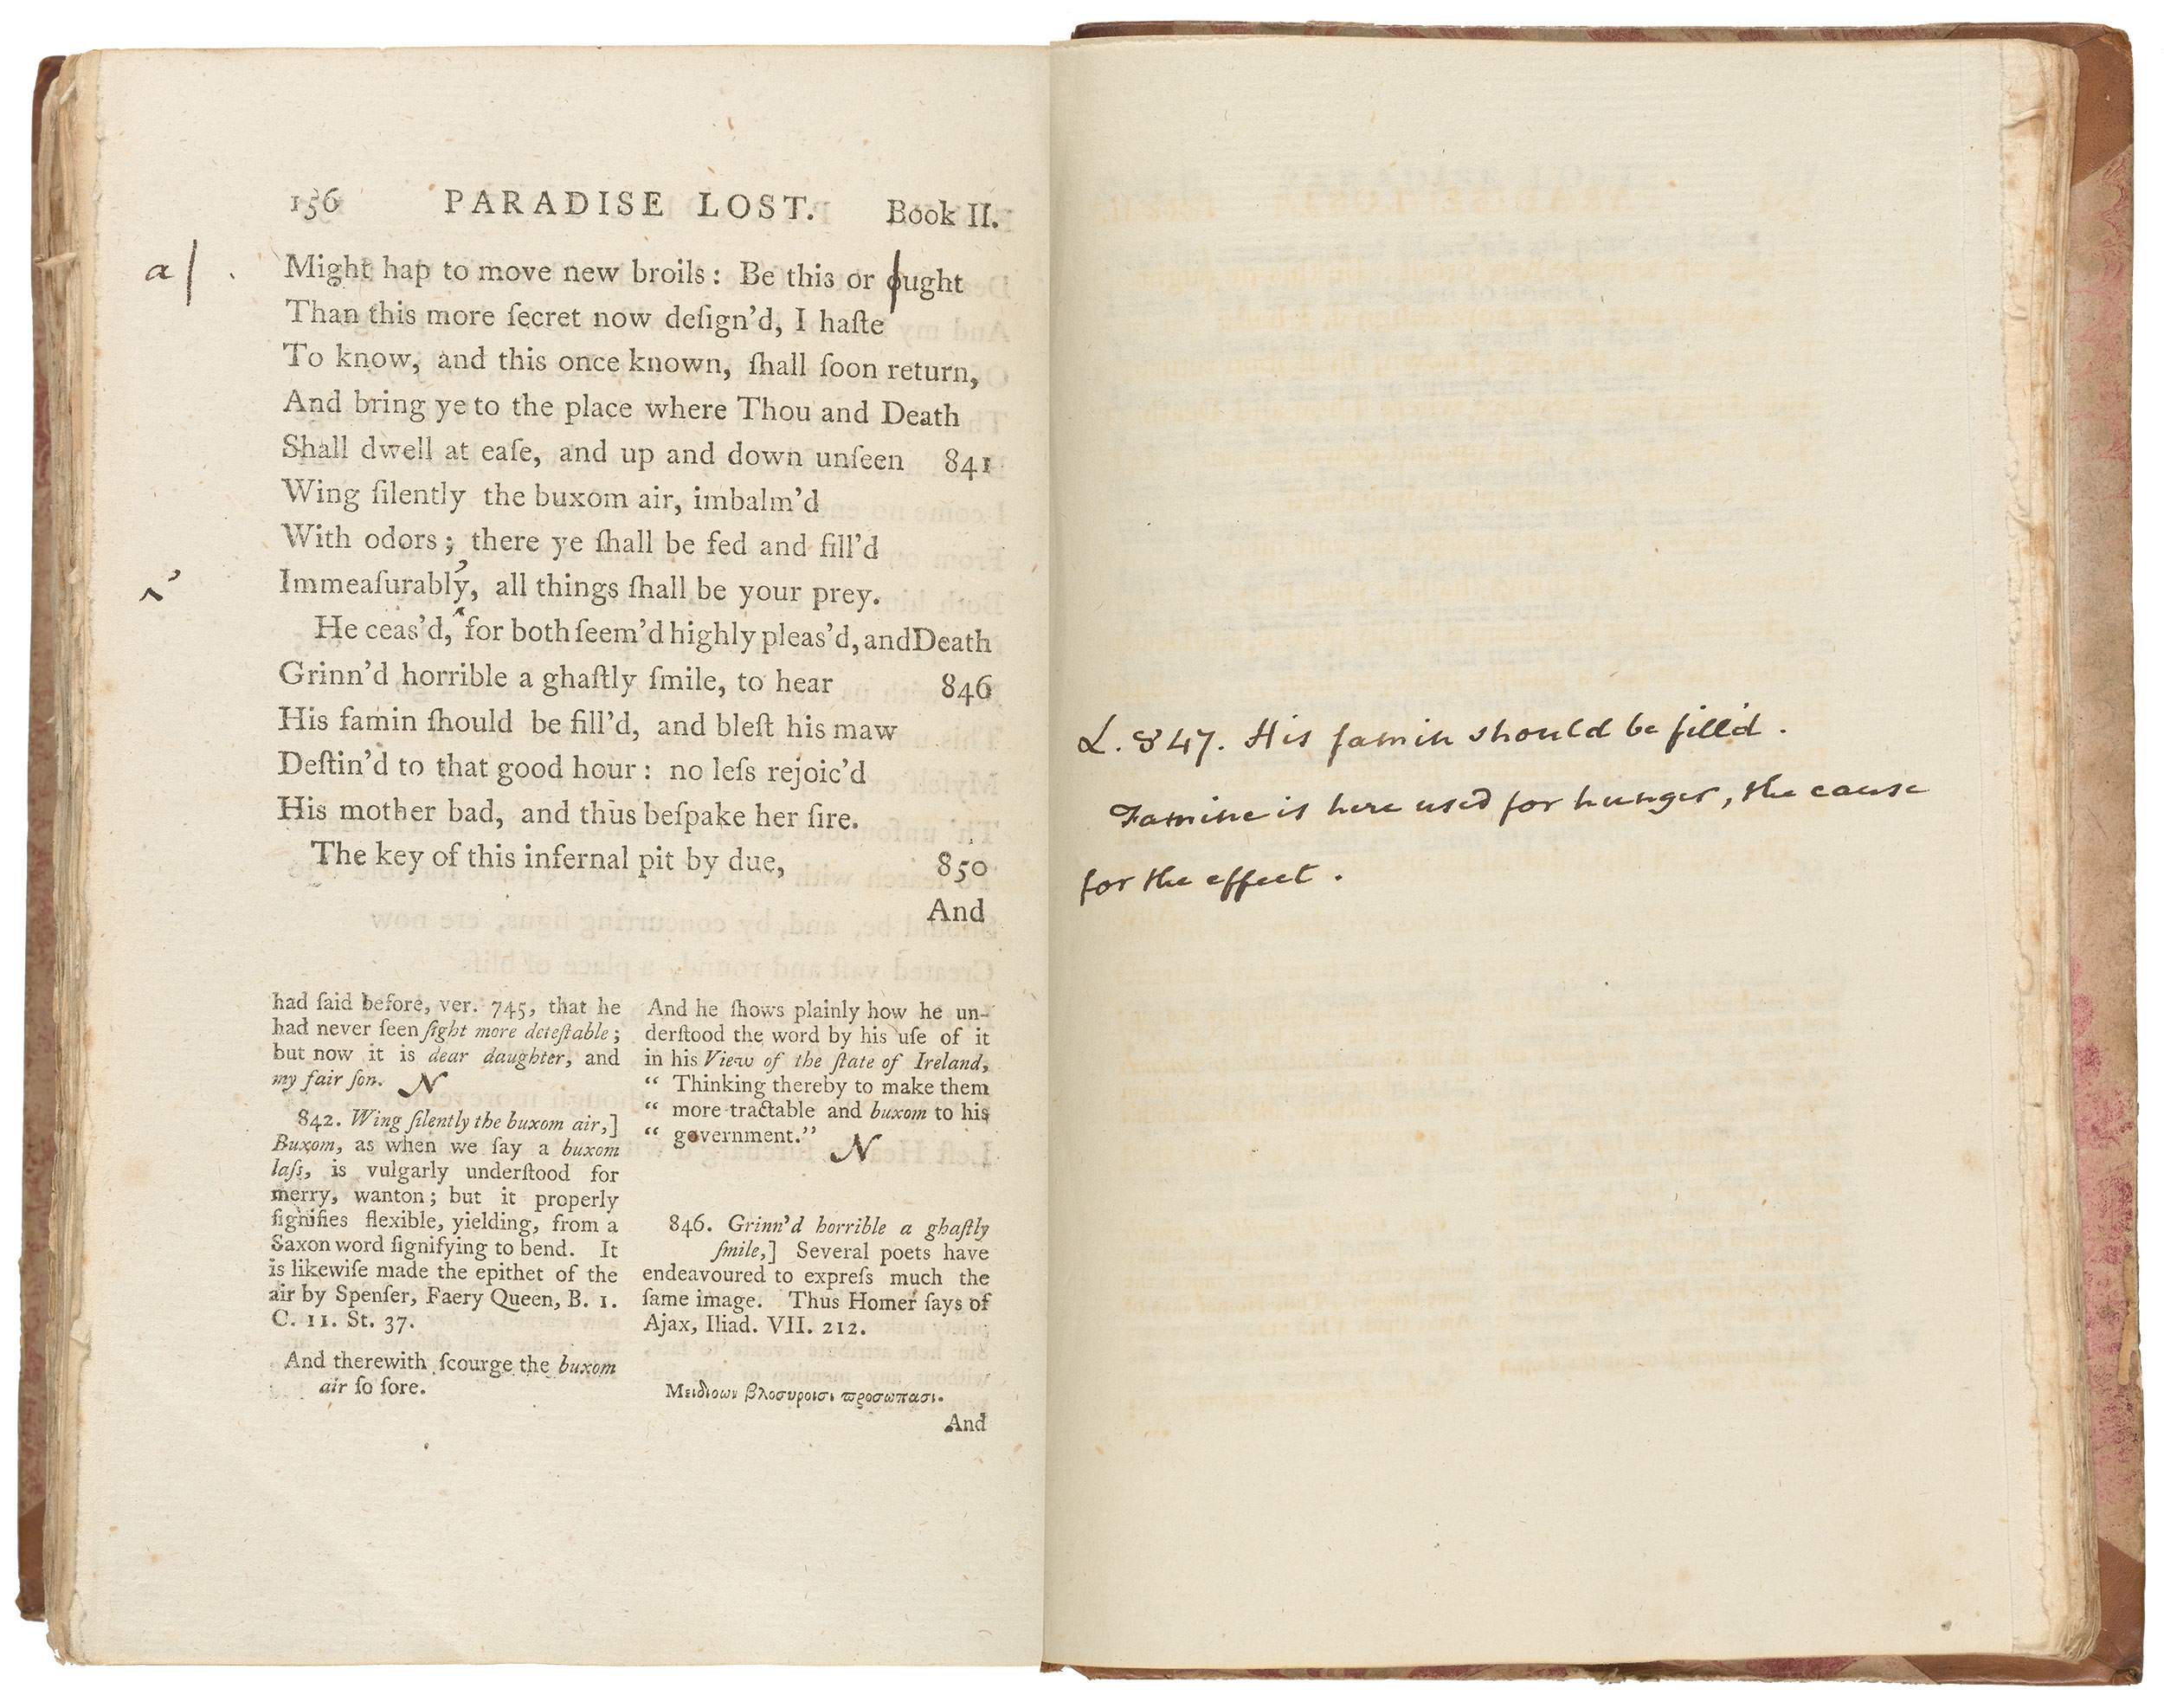 156 PARADISE LOST. Book II.
a/ Might hap to move new broils: Be this or ought
Than this more ſecret now deſign’d, I haſte
To know, and this once known, ſhall ſoon return,
And bring ye to the place where Thou and Death
Shall dwell at eaſe, and up and down unſeen 841
Wing ſilently the buxom air, imbalm’d
With odors; there ye ſhall be fed and fill’d
Immeaſurably, all things ſhall be your prey.
He ceas’d, for both ſeem’d highly pleas’d, and Death
Grinn’d horrible a ghaſtly ſmile, to hear 846
His famin ſhould be fill’d, and bleſt his maw
Deſtin’d to that good hour: no leſs rejoic’d
His mother bad, and thus beſpake her ſire.
The key of this infernal pit by due, 850
And
had ſaid before, ver. 745, that he
had never ſeen ſight more deteſtable;
but now it is dear daughter, and
my fair ſon. N
842. Wing ſilently the buxom air,]
Buxom, as when we ſay a buxom
laſs, is vulgarly underſtood for
merry, wanton; but it properly
ſignifies flexible, yielding, from a
Saxon word ſignifying to bend. It
is likewiſe made the epithet of the
air by Spenſer, Faery Queen, B. 1.
C. 11. St. 37.
And therewith ſcourge the buxom
air ſo ſore.
And he ſhows plainly how he un-
derſtood the word by his uſe of it
in his View of the ſtate of Ireland,
“ Thinking thereby to make them
“ more tractable and buxom to his
“ government.” N
846. Grinn’d horrible a ghaſtly
ſmile,] Several poets have
endeavoured to expreſs much the
ſame image. Thus Homer ſays of
Ajax, Iliad. VII. 212.
Μειδιοων βλοσυροισι ϖροσωπασι.
And
L. 847. His famin should be fill'd.
Famine is here used for hunger, the cause
for the effect.